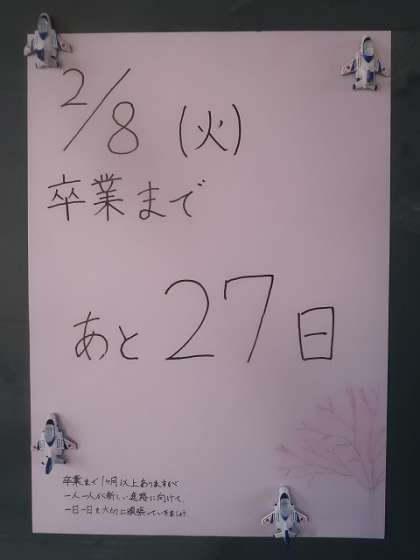 2/8 (火)
卒業まで
あと 27日
卒業まで1ヶ月以上ありますが
一人一人が新しい進路に向けて
一日一日を大切に頑張っていきましょう